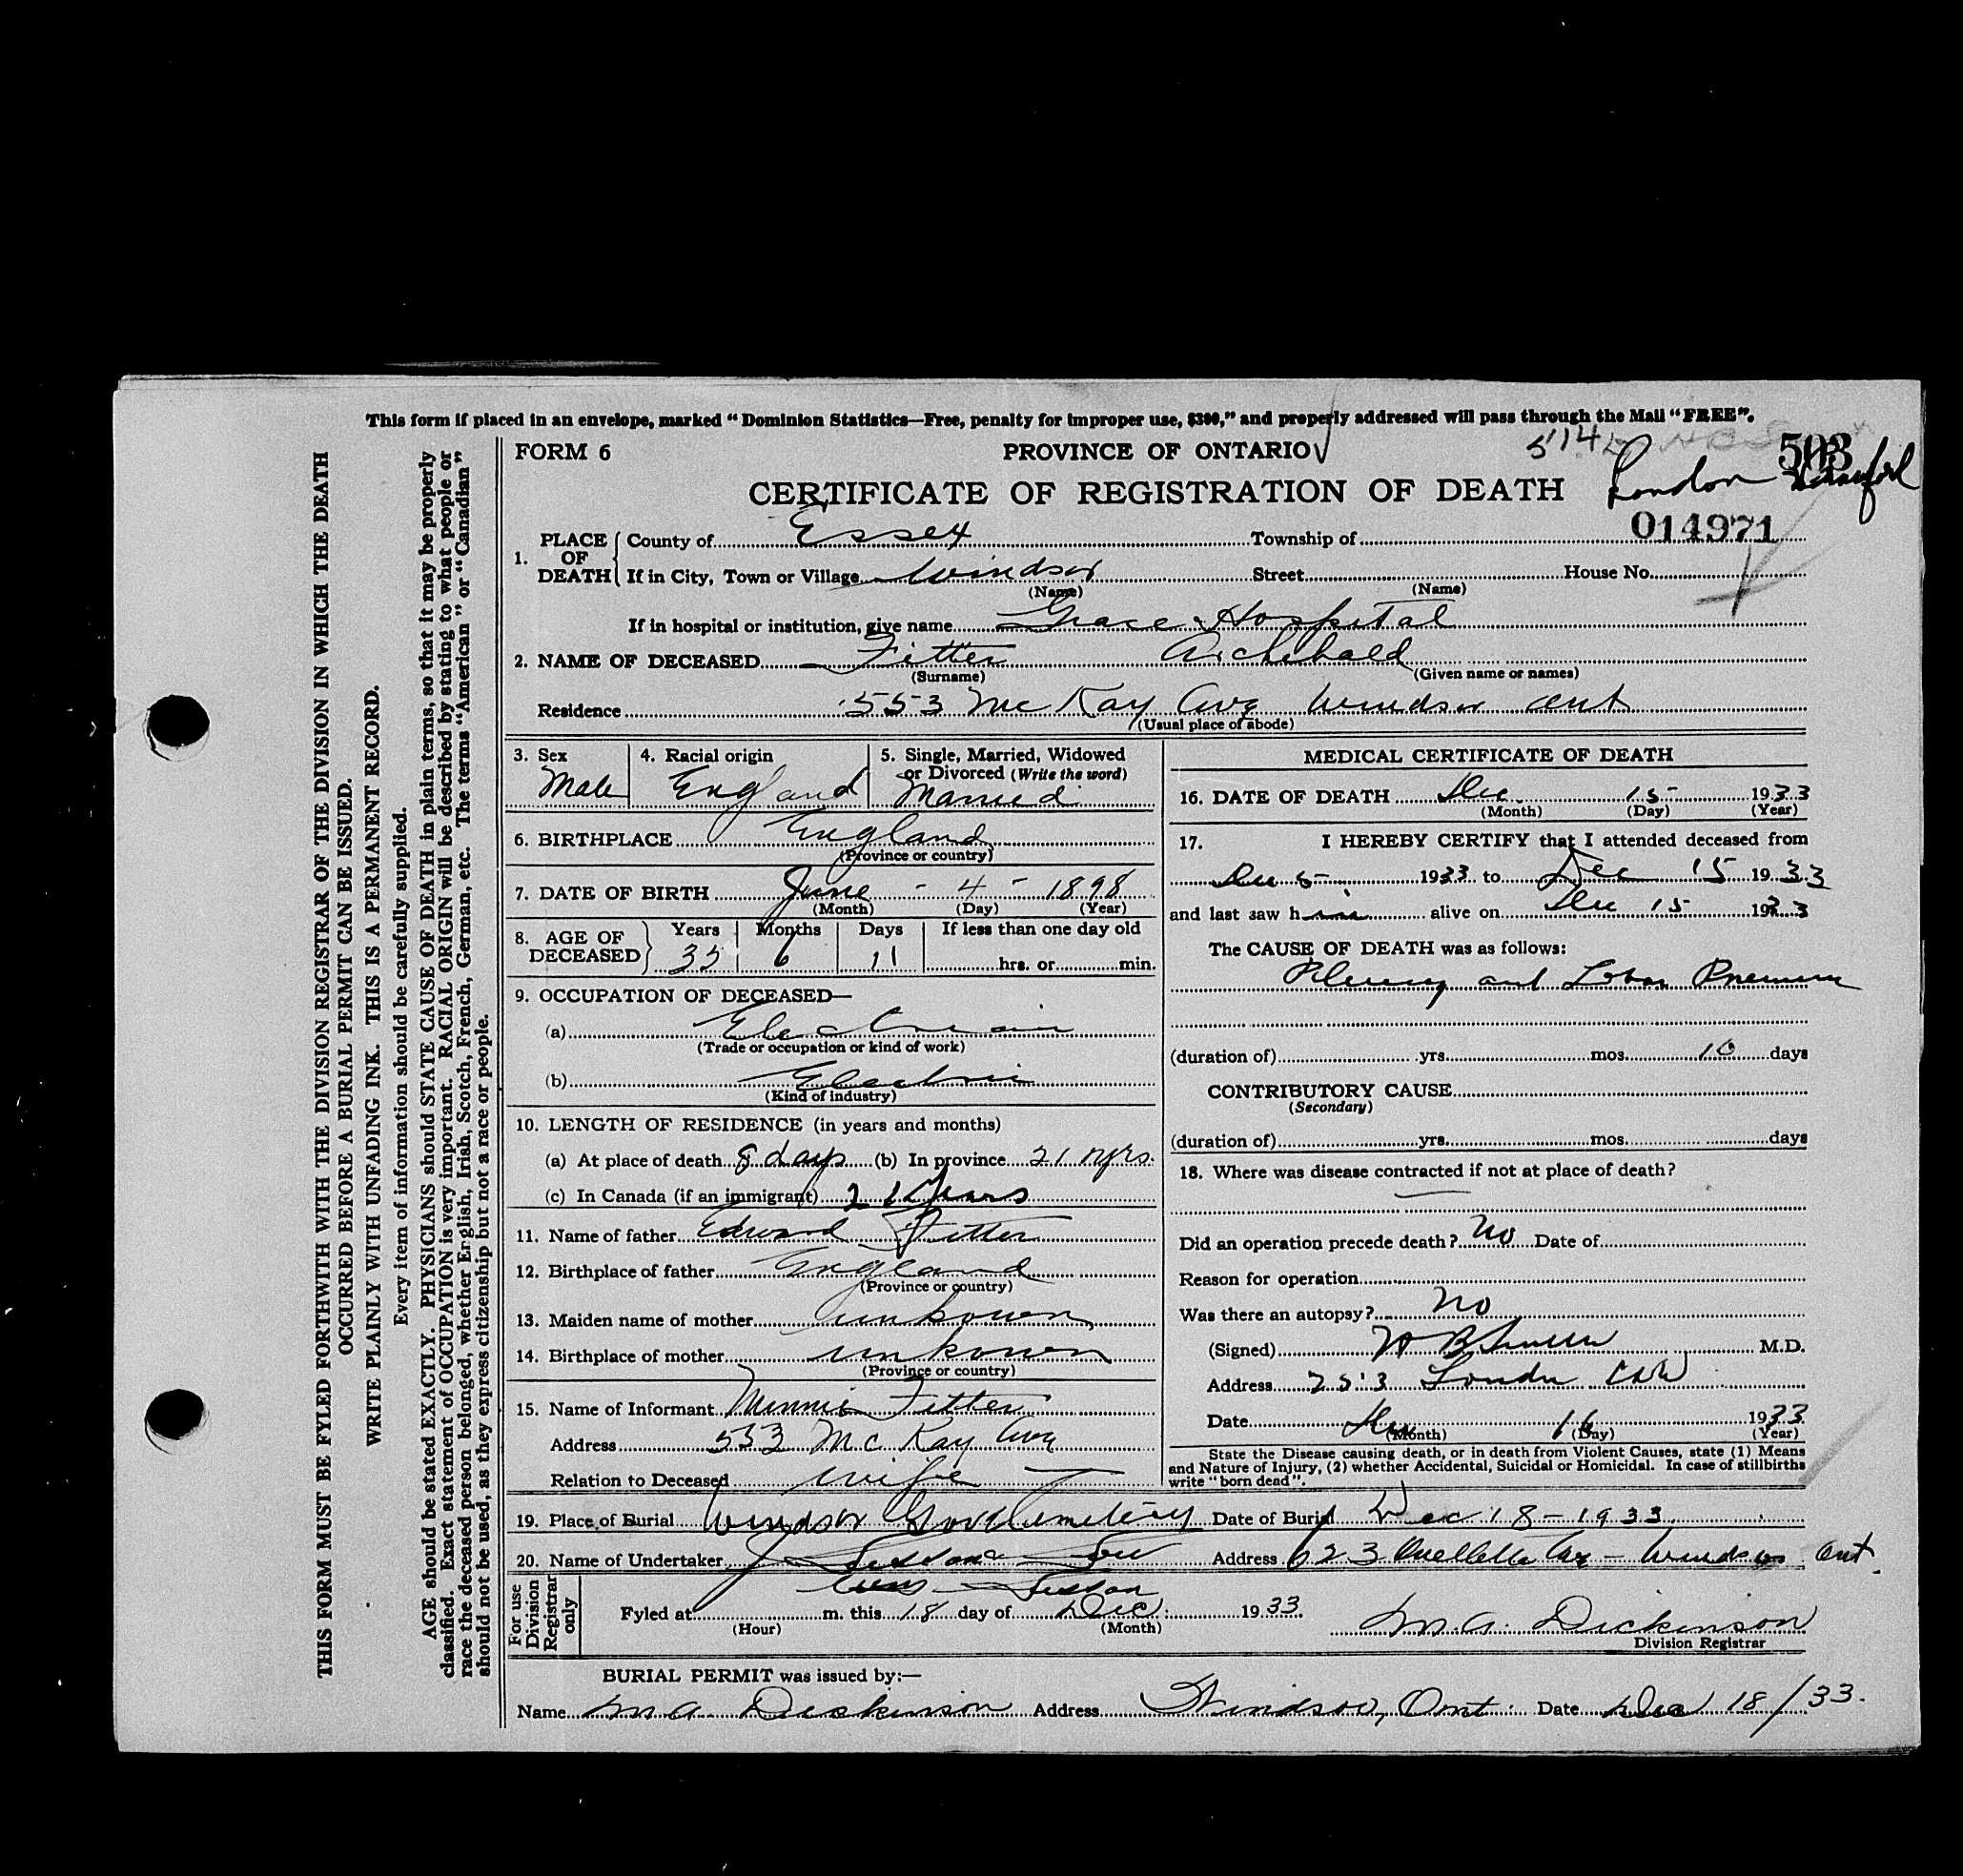 This form if placed in an envelope, marked “Dominion Statistics—Free, penalty for improper use, $300,” and properly addressed will pass through the Mail “FREE”.
FORM 6 PROVINCE OF ONTARIO 503
CERTIFICATE OF REGISTRATION OF DEATH London
014971
1. PLACE OF DEATH County of Essex Township of
If in City, Town or Village Windsor Street House No.
(Name) (Name)
If in hospital or institution, give name Grace Hospital
2. NAME OF DECEASED Fitter Archibald
(Surname) (Given name or names)
Residence 553 McKay Ave Windsor Ont
(Usual place of abode)
3. Sex Male
4. Racial origin England
5. Single, Married, Widowed or Divorced (Write the word) Married
6. BIRTHPLACE England
(Province or country)
7. DATE OF BIRTH June - 4 - 1898
(Month) (Day) (Year)
8. AGE OF DECEASED Years Months Days If less than one day old
35 6 11 hrs. or min.
9. OCCUPATION OF DECEASED—
(a) Electrician
(Trade or occupation or kind of work)
(b) Electric
(Kind of industry)
10. LENGTH OF RESIDENCE (in years and months)
(a) At place of death 8 days (b) In province 21 yrs.
(c) In Canada (if an immigrant) 21 Years
11. Name of father Edward Fitter
12. Birthplace of father England
(Province or country)
13. Maiden name of mother unkown
14. Birthplace of mother unkown
(Province or country)
15. Name of Informant Minnie Fitter
Address 553 McKay Ave
Relation to Deceased wife
MEDICAL CERTIFICATE OF DEATH
16. DATE OF DEATH Dec. 15 1933
(Month) (Day) (Year)
17. I HEREBY CERTIFY that I attended deceased from
Dec 5 1933 to Dec 15 1933
and last saw him alive on Dec 15 1933
The CAUSE OF DEATH was as follows:
Pleurisy and Lobar Pneumonia
(duration of) yrs. mos. 10 days
CONTRIBUTORY CAUSE
(Secondary)
(duration of) yrs. mos. days
18. Where was disease contracted if not at place of death?
Did an operation precede death? No Date of
Reason for operation
Was there an autopsy? No
(Signed) M.D.
Address 253 London
Date Dec 16 1933
(Month) (Day) (Year)
State the Disease causing death, or in death from Violent Causes, state (1) Means
and Nature of Injury, (2) whether Accidental, Suicidal or Homicidal. In case of stillbirths
write “born dead”.
19. Place of Burial Windsor Grove Cemetery Date of Burial Dec 18 - 1933
20. Name of Undertaker Address 623 Ouellette Ave - Windsor Ont.
For use Division Registrar only
Fyled at m. this 18 day of Dec. 1933. M.A. Dickinson
(Hour) (Month) Division Registrar
BURIAL PERMIT was issued by:—
Name M.A. Dickinson Address Windsor, Ont. Date Dec 18/33.
THIS FORM MUST BE FYLED FORTHWITH WITH THE DIVISION REGISTRAR OF THE DIVISION IN WHICH THE DEATH
OCCURRED BEFORE A BURIAL PERMIT CAN BE ISSUED.
WRITE PLAINLY WITH UNFADING INK. THIS IS A PERMANENT RECORD.
Every item of information should be carefully supplied.
AGE should be stated EXACTLY. PHYSICIANS should STATE CAUSE OF DEATH in plain terms, so that it may be properly
classified. Exact statement of OCCUPATION is very important. RACIAL ORIGIN will be described by stating to what people or
race the deceased person belonged, whether English, Irish, Scotch, French, German, etc. The terms “American” or “Canadian”
should not be used, as they express citizenship but not a race or people.